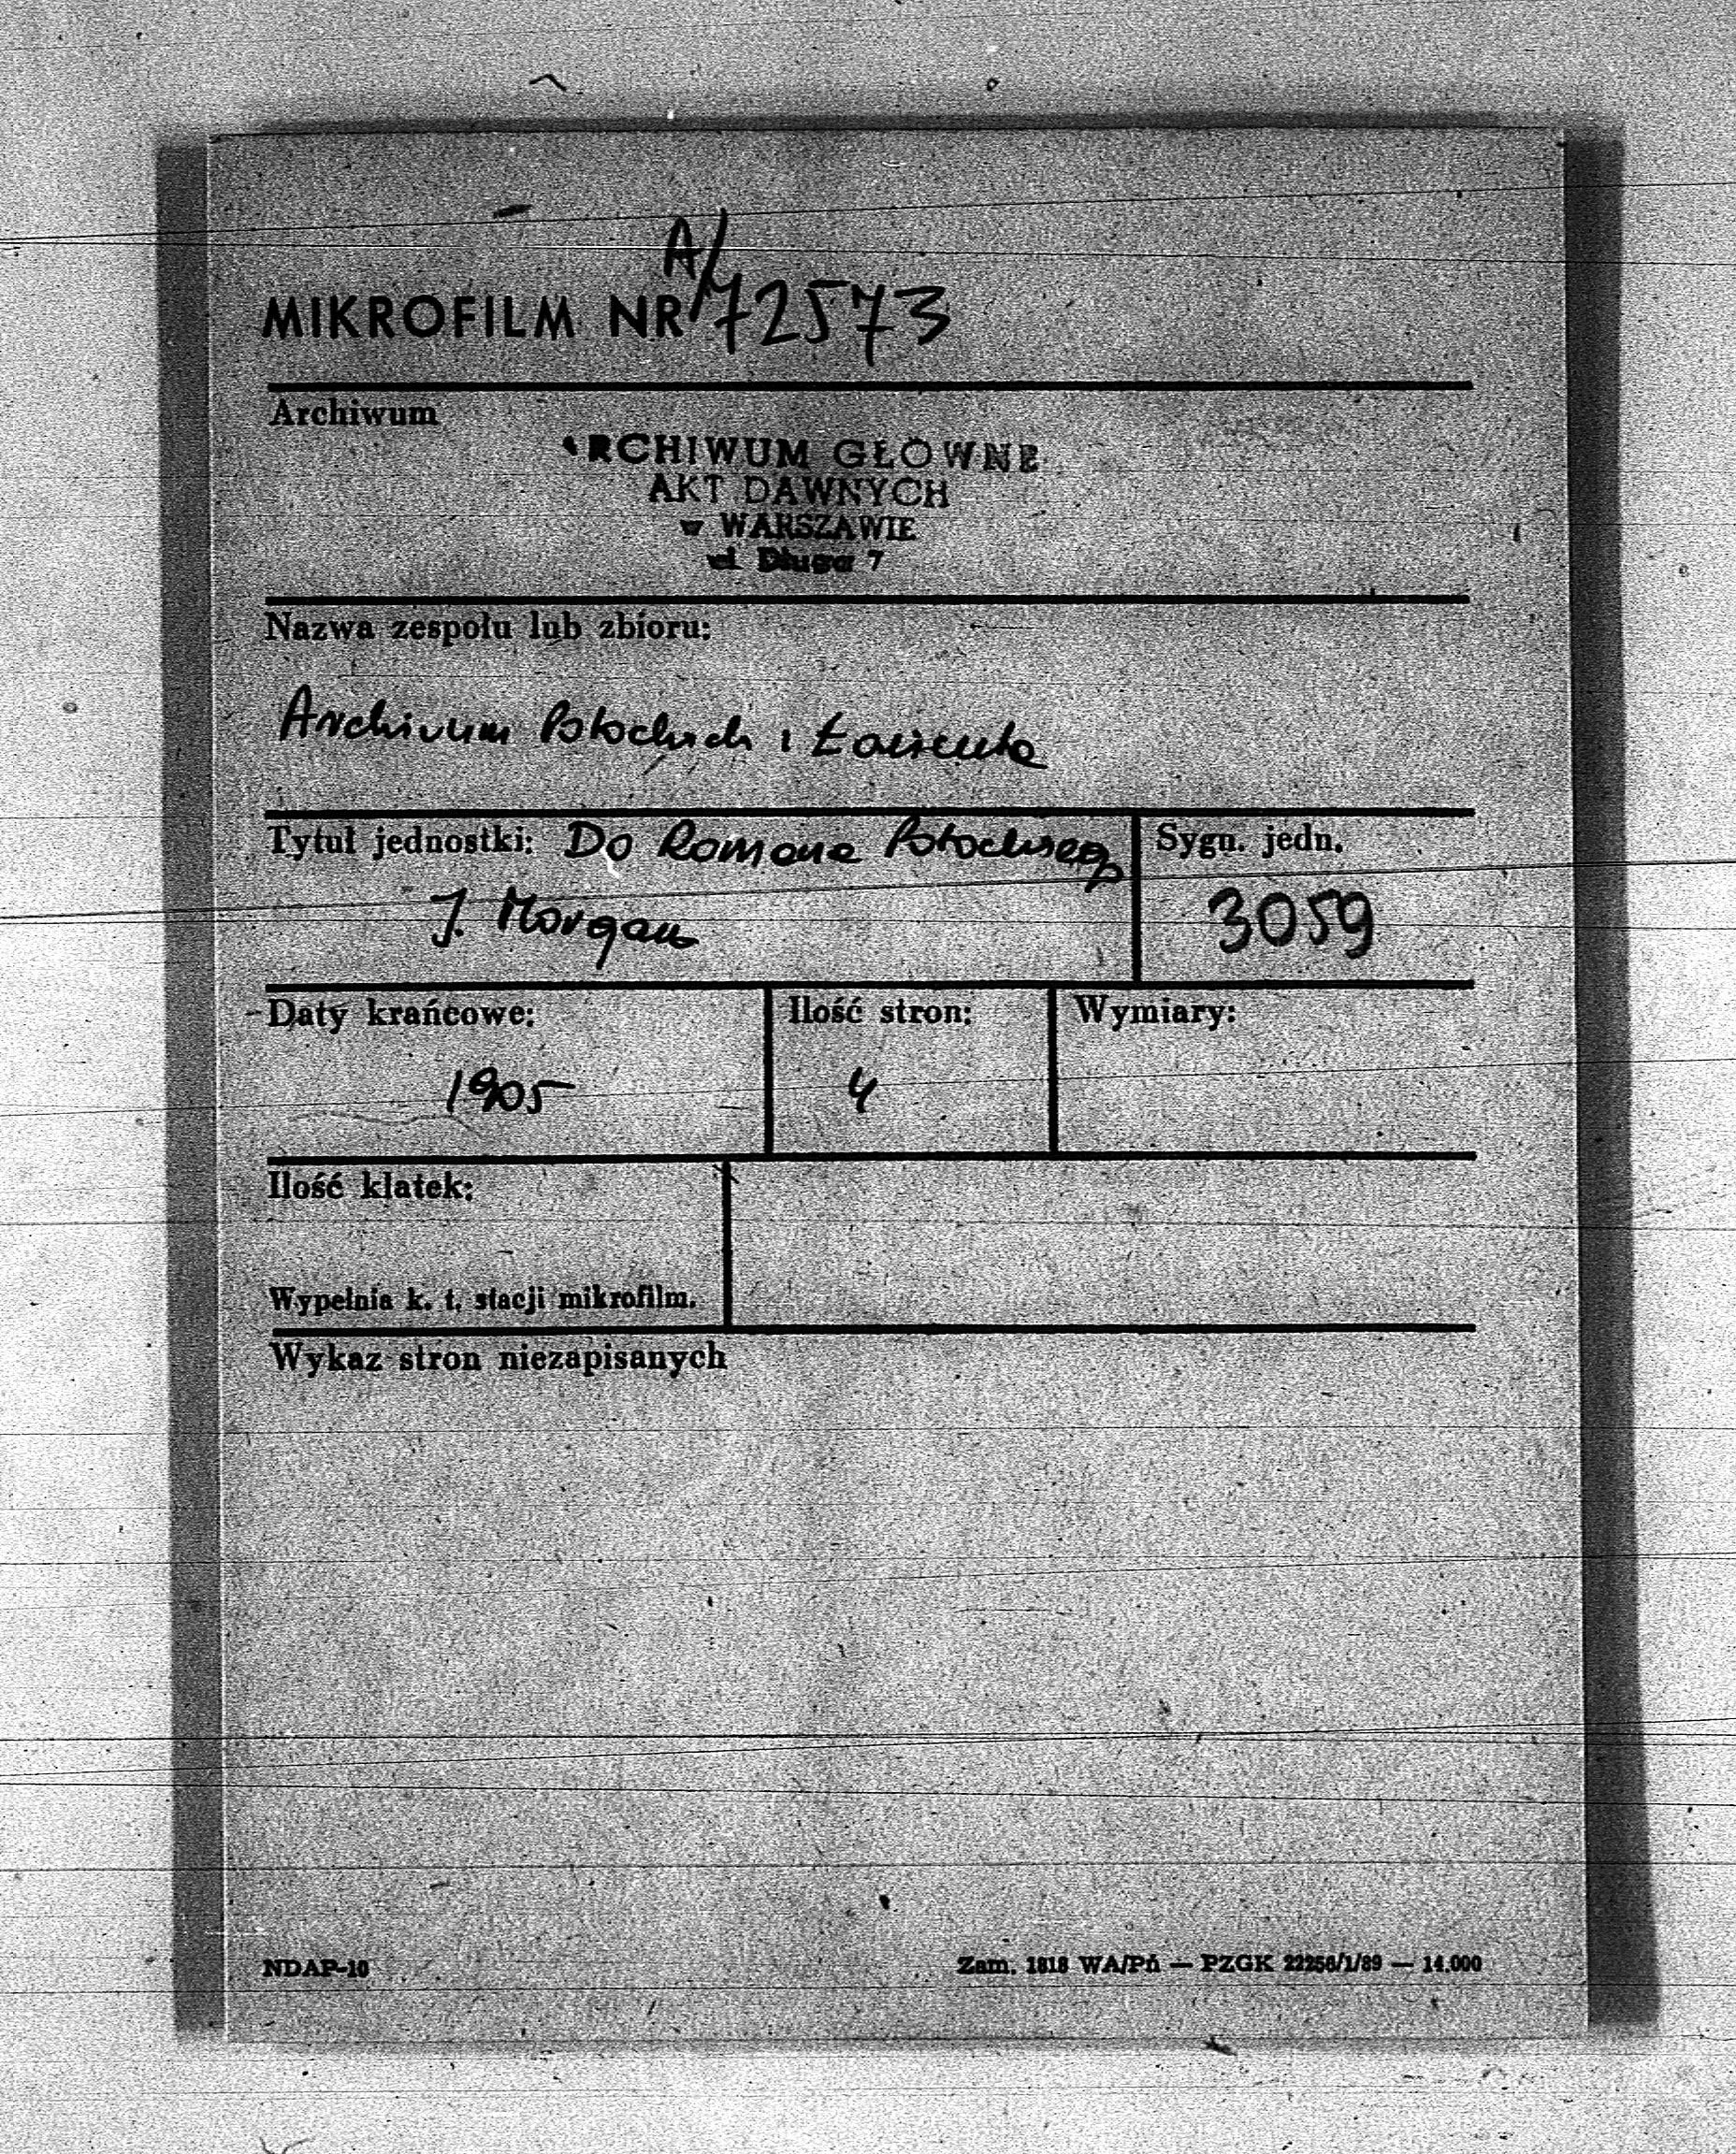 A/72573
MIKROFILM NR
Archiwum
ARCHIWUM GŁÓWNE
AKT DAWNYCH
w WARSZAWIE
ul. Długa 7
Nazwa zespołu lub zbioru:
Archiwum Potockich z Łańcuta
Tytuł jednostki: Do Romana Potockiego
J. Morgan
Sygn. jedn.
3059
Daty krańcowe:
1905
Ilość stron:
4
Wymiary:
Ilość klatek:
Wypełnia k. t. stacji mikrofilm.
Wykaz stron niezapisanych
NDAP-10
Zam. 1818 WA/Pń — PZGK 22256/1/89 — 14.000